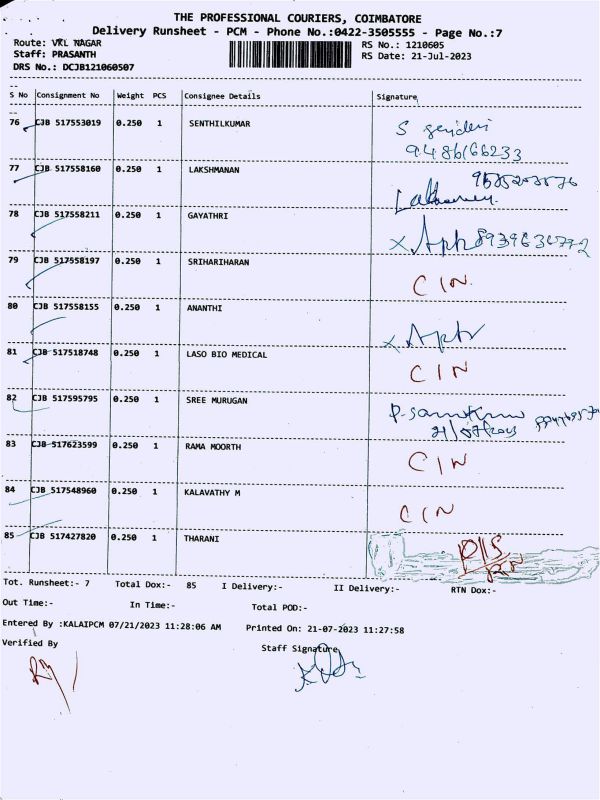 THE PROFESSIONAL COURIERS, COIMBATORE
Delivery Runsheet - PCM - Phone No.:0422-3505555 - Page No.:7
Route: VKL NAGAR RS No.: 1210605
Staff: PRASANTH RS Date: 21-Jul-2023
DRS No.: DCJB121060507
S No Consignment No Weight PCS Consignee Details Signature
76 CJB 517553019 0.250 1 SENTHILKUMAR
9486166233
77 CJB 517558160 0.250 1 LAKSHMANAN
78 CJB 517558211 0.250 1 GAYATHRI
79 CJB 517558197 0.250 1 SRIHARIHARAN CIN
80 CJB 517558155 0.250 1 ANANTHI
81 CJB 517518748 0.250 1 LASO BIO MEDICAL CIN
82 CJB 517595795 0.250 1 SREE MURUGAN
83 CJB 517623599 0.250 1 RAMA MOORTH CIN
84 CJB 517548960 0.250 1 KALAVATHY M CIN
85 CJB 517427820 0.250 1 THARANI
Tot. Runsheet:- 7 Total Dox:- 85 I Delivery:- II Delivery:- RTN Dox:-
Out Time:- In Time:- Total POD:-
Entered By :KALAIPCM 07/21/2023 11:28:06 AM Printed On: 21-07-2023 11:27:58
Verified By Staff Signature